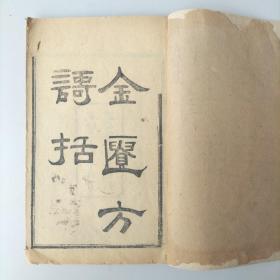 金匱方
謌括